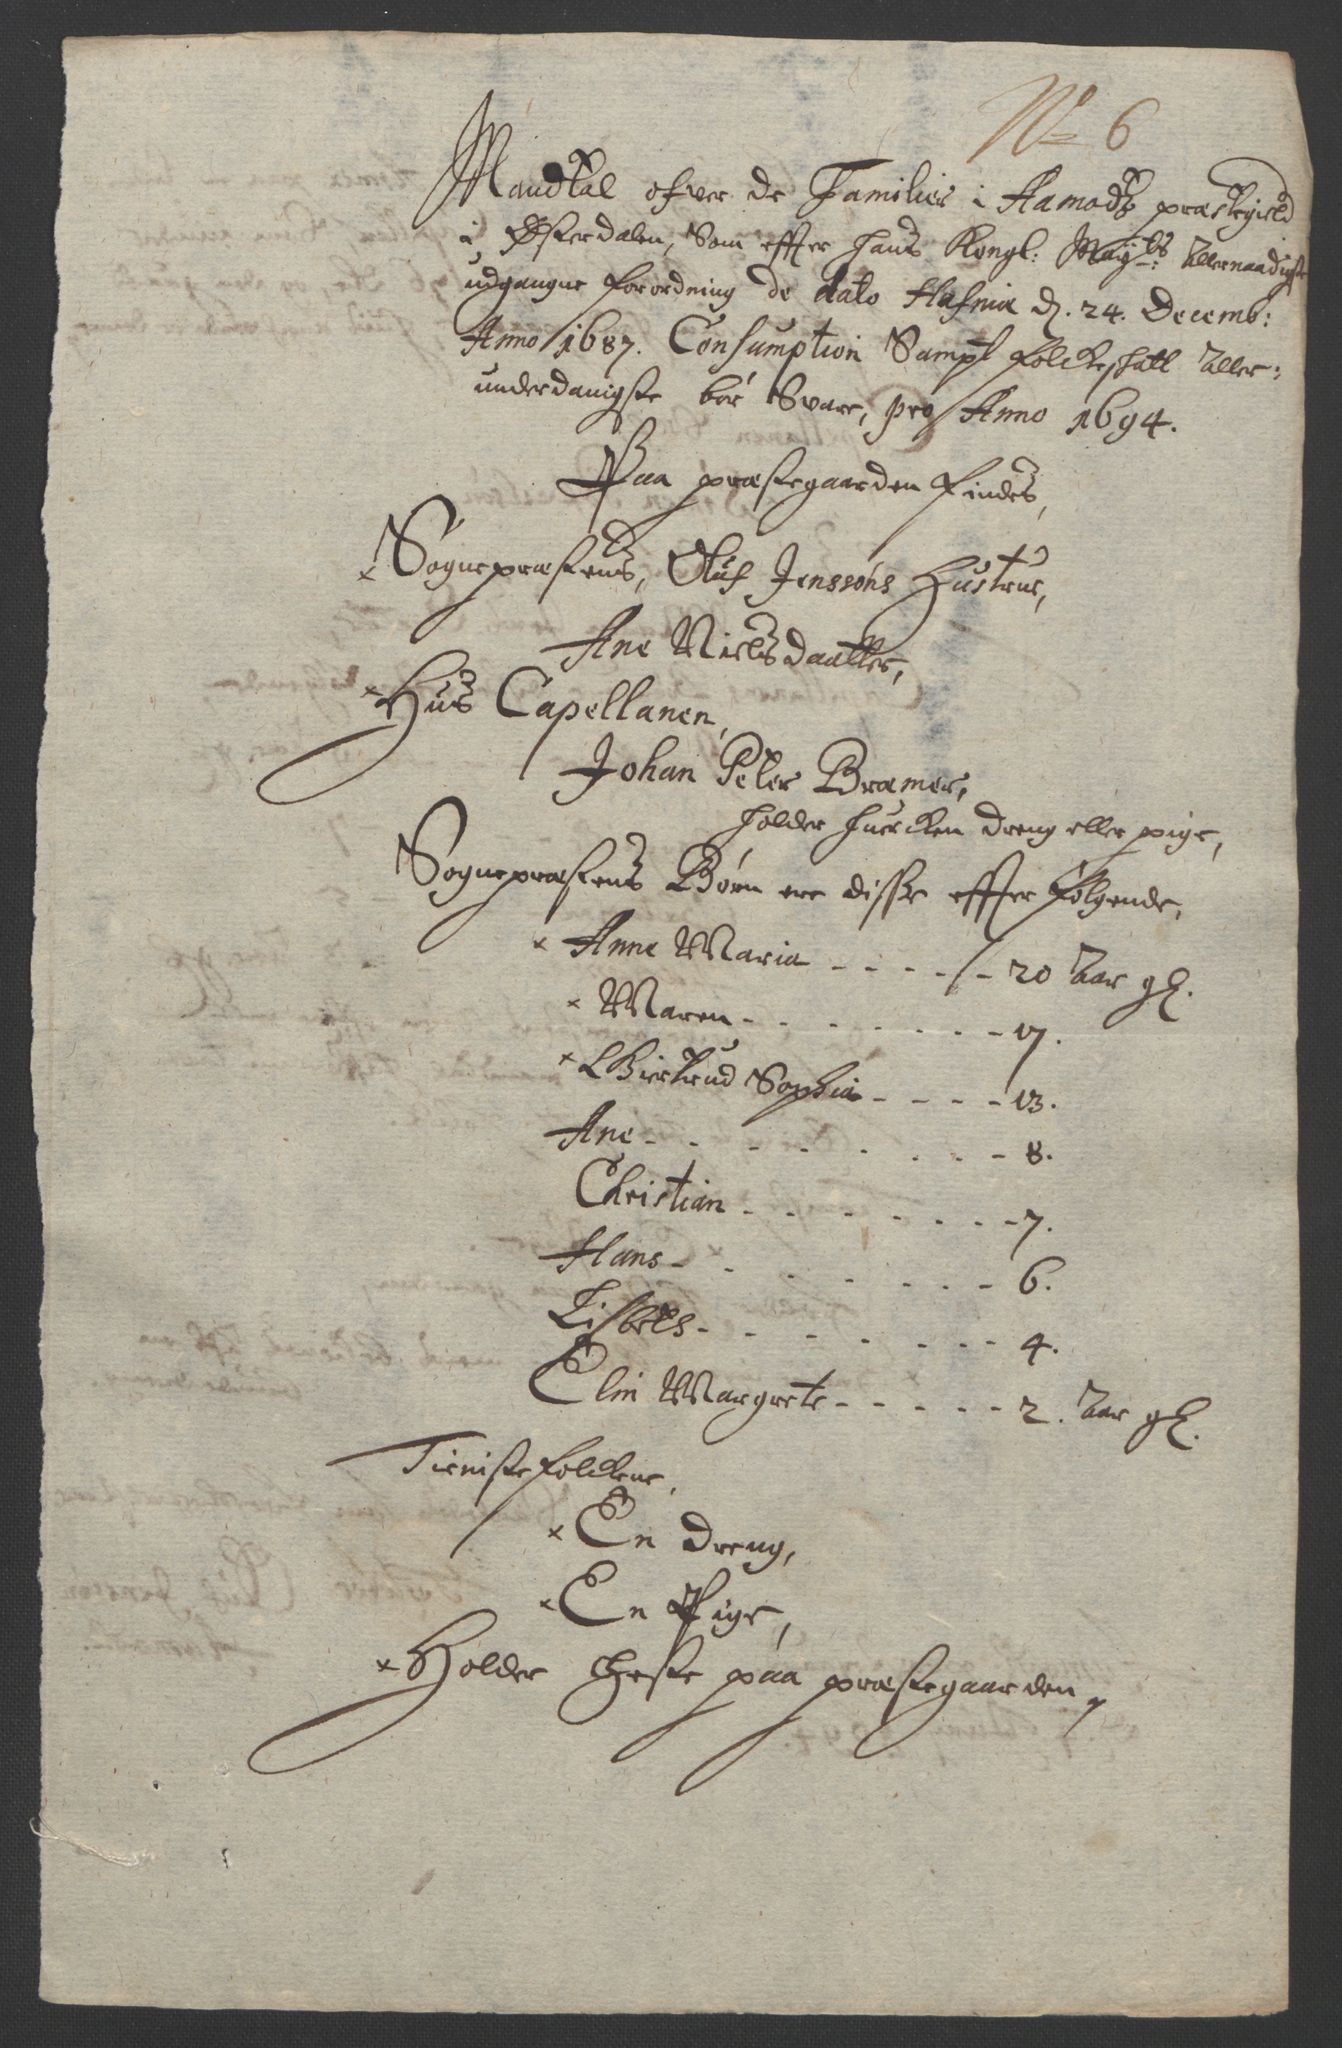 No 6
Mandtal ofver de Familier i Aamodtz præstegield
i Østerdalen, Som effter hans Kongl: May:ts allernaadigste
udgangne forordning de dato Hafniæ d. 24. Decemb:
Anno 1687. Consumption Sampt folckeschatt aller:
underdanigste bør Svare, pro Anno 1694.
Paa præstegaarden findes,
x Sognepræstens, Oluf Jenssøns Hustrue,
Ane Nielsdaatter,
x Huus Capellanen,
Johan Peter Bræmer,
holder huercken dreng eller pige,
Sognepræstens Børn ere disse effter følgende,
x Anne Maria - - - - - 20 aar gl.
x Maren - - - - - - - 17.
x Giertrud Sophia - - - - 13.
Ane - - - - - - - - 8.
Christian - - - - - - - 7.
Hans - - - - - - - 6.
Lisbets - - - - - - - 4.
Elin Margrete - - - - - 2. aar gl.
Tienistefolckene,
x En dreng,
x En Pige,
x Holder heste paa præstegaarden,